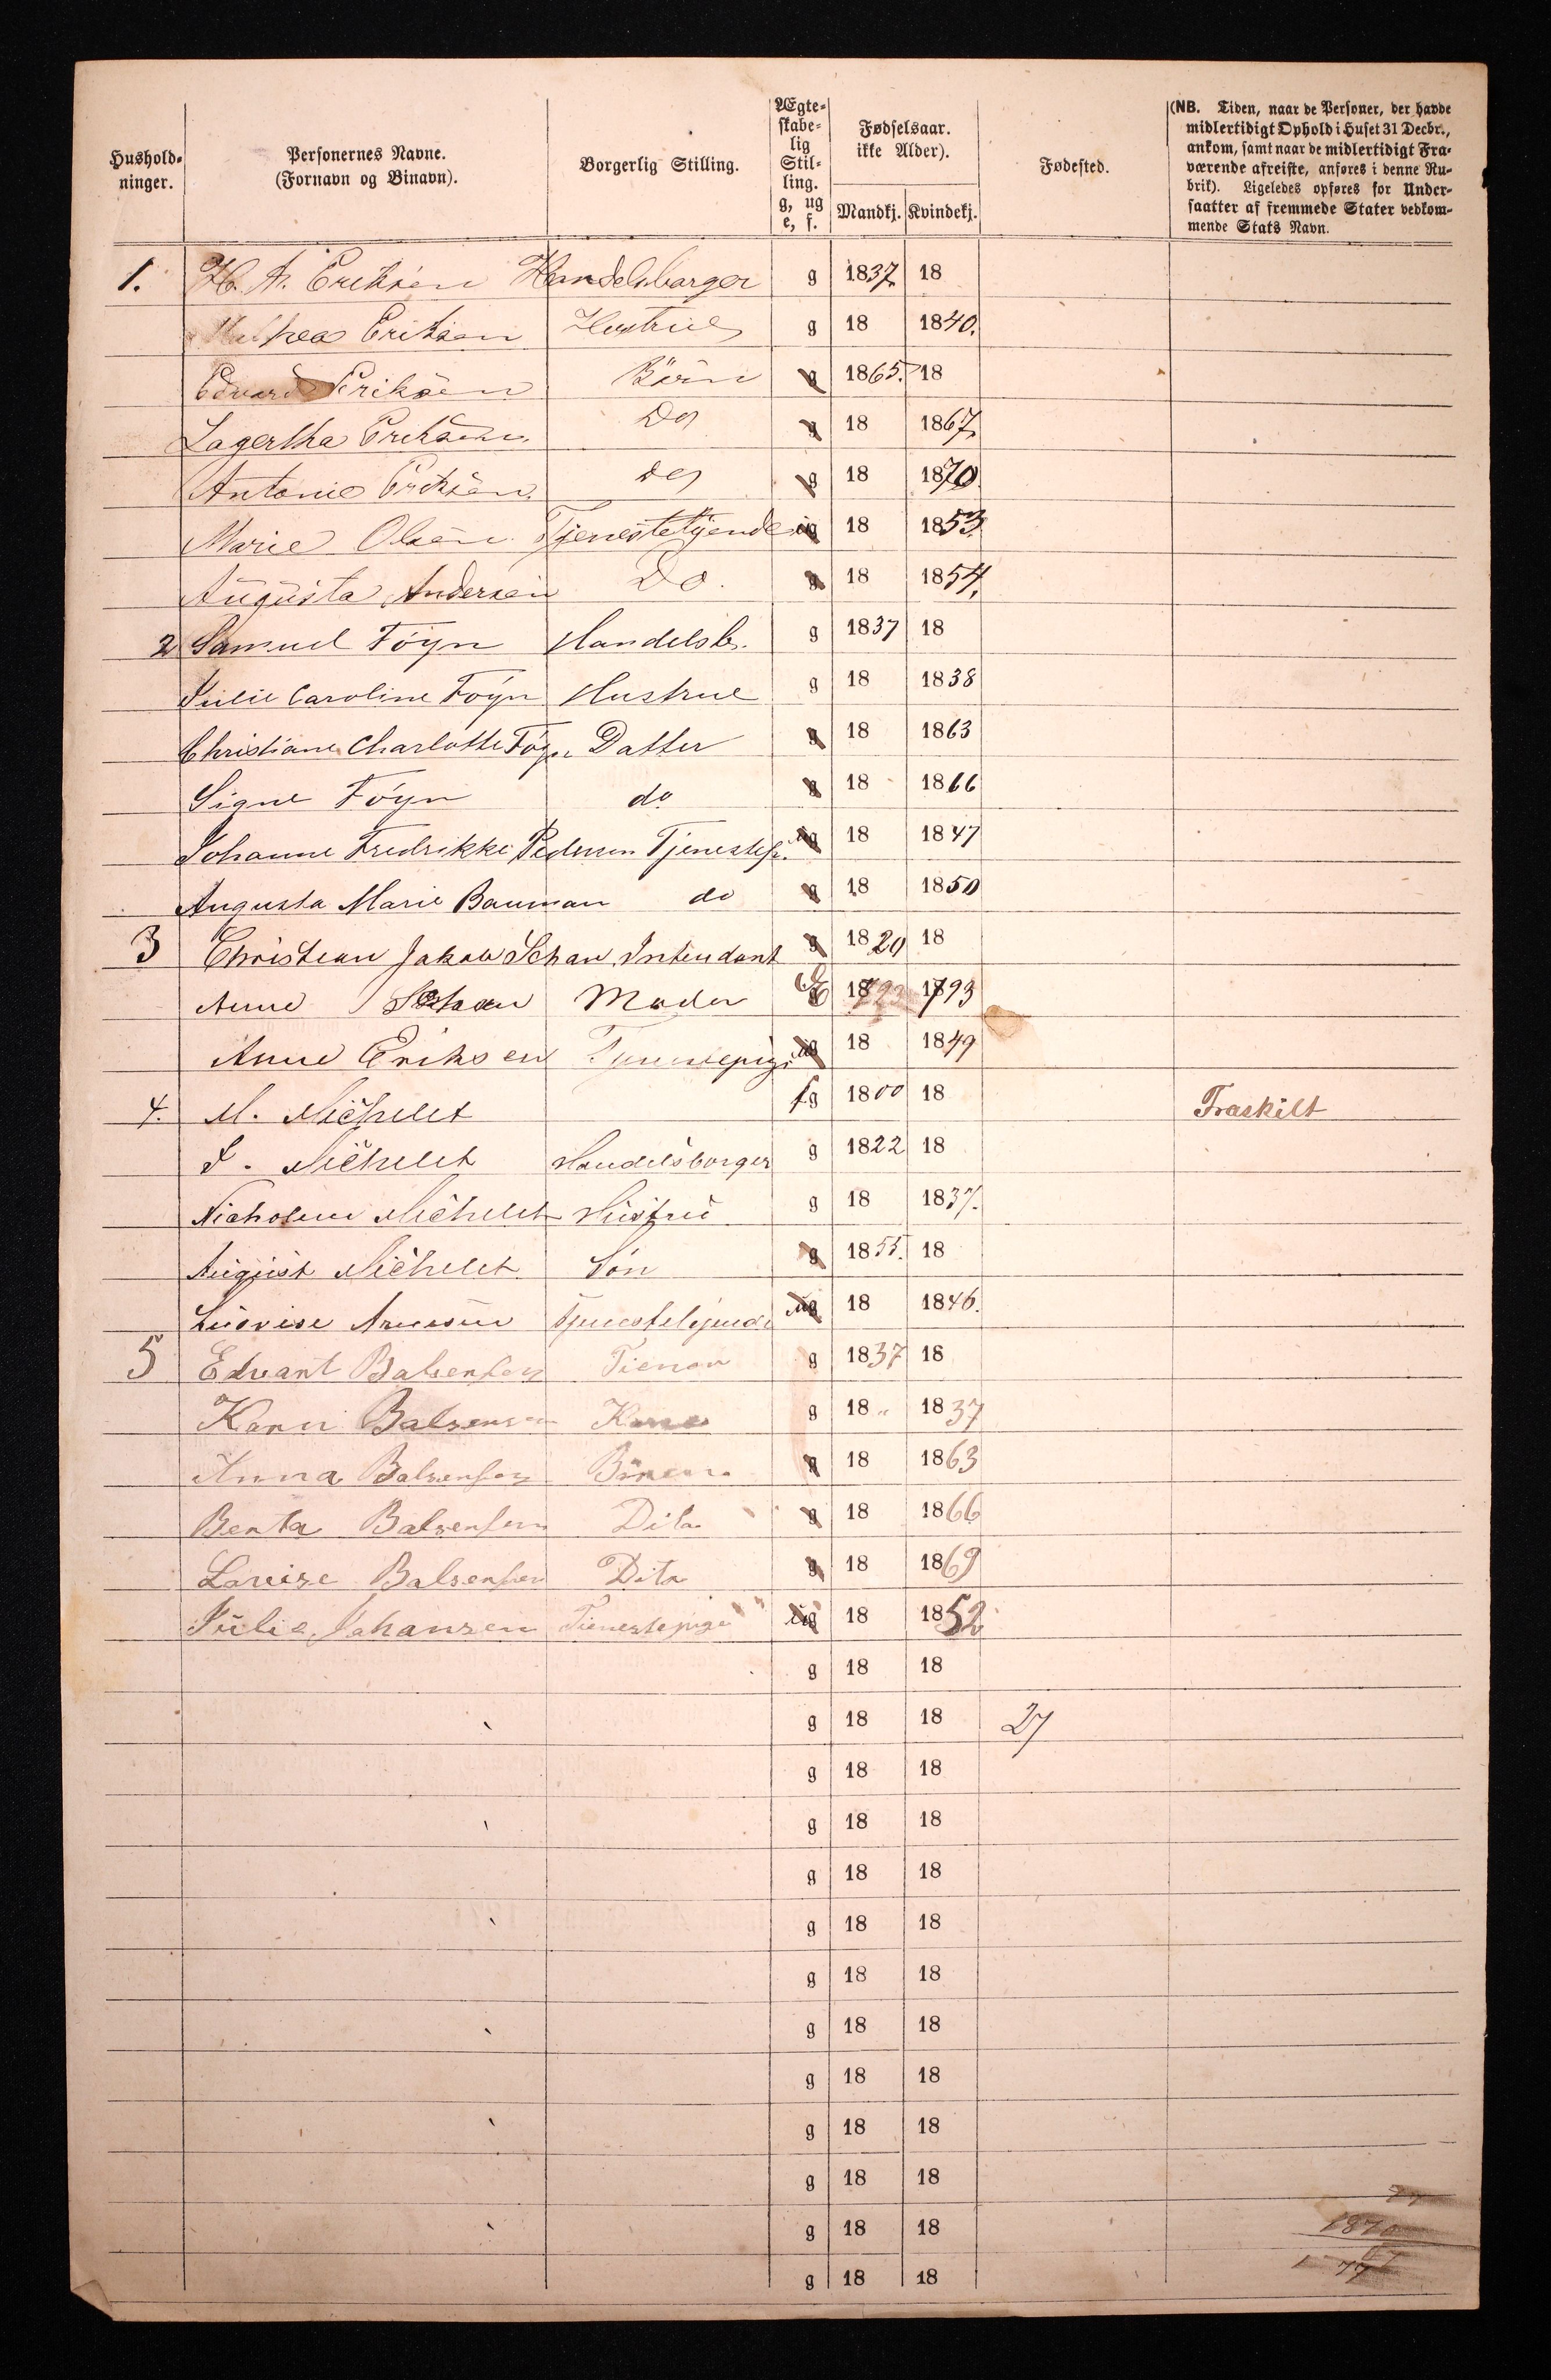 Hushold-
ninger.
Personernes Navne.
(Fornavn og Binavn).
Borgerlig Stilling.
Ægte-
skabe-
lig
Stil-
ling.
g, ug
e, f.
Fødselsaar.
ikke Alder).
Mandkj. Kvindekj.
Fødested.
(NB. Tiden, naar de Personer, der havde
midlertidigt Ophold i Huset 31 Decbr.,
ankom, samt naar de midlertidigt Fra-
værende afreiste, anføres i denne Ru-
brik). Ligeledes opføres for Under-
saatter af fremmede Stater vedkom-
mende Stats Navn.
1. H. A. Eriksen Handelsborger g 1837 18
Eriksen Hustrue g 18 1840.
Edvard Eriksen Börn g 1865. 18
Lagertha Eriksen Do g 18 1867.
Antonie Eriksen. Do g 18 1870.
Marie Olsen Tjenestetyende ug 18 1853.
Augusta Andersen Do. g 18 1854.
2 Samuel Föyn Handelsb. g 1837 18
Julie Caroline Föyn Hustrue g 18 1838
Christiane Charlotte Föyn Datter g 18 1863
Signe Föyn do g 18 1866
Johanne Fredrikke Pedersen Tjenestep. ug 18 1847
Augusta Marie Bauman do g 18 1850
3 Christian Jakob Schau Intendant g 1820 18
Anne Schau Moder E 18 1793
Anne Eriksen Tjenestepige ug 18 1849
4. M. Michelet fg 1800 18 Fraskilt
J. Michelet Handelsborger g 1822 18
Nicholine Michelet Hustru g 18 1837.
August Michelet Sön g 1855. 18
Lüovise Arnesen Tjenestetyende ug 18 1846.
5 Edvart Balsensen Tienar g 1837 18
Karn Balsensen Kone g 18 1837
Anna Balsensen g 18 1863
Benta Balsensen Dito g 18 1866
Lovise Balsensen Dito g 18 1869
Julie Johansen Tienestepige ug 18 1852
g 18 18
g 18 18 27
g 18 18
g 18 18
g 18 18
g 18 18
g 18 18
g 18 18
g 18 18
g 18 18
g 18 18
g 18 18
g 18 18